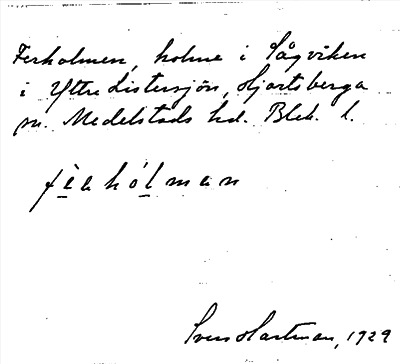 Ferholmen, holme i Sågviken
i Yttre Listersjön, Hjortsberga
sn. Medelstads hd. Blek. l.
fè̱a hól̠man
Sven Hartman, 1929